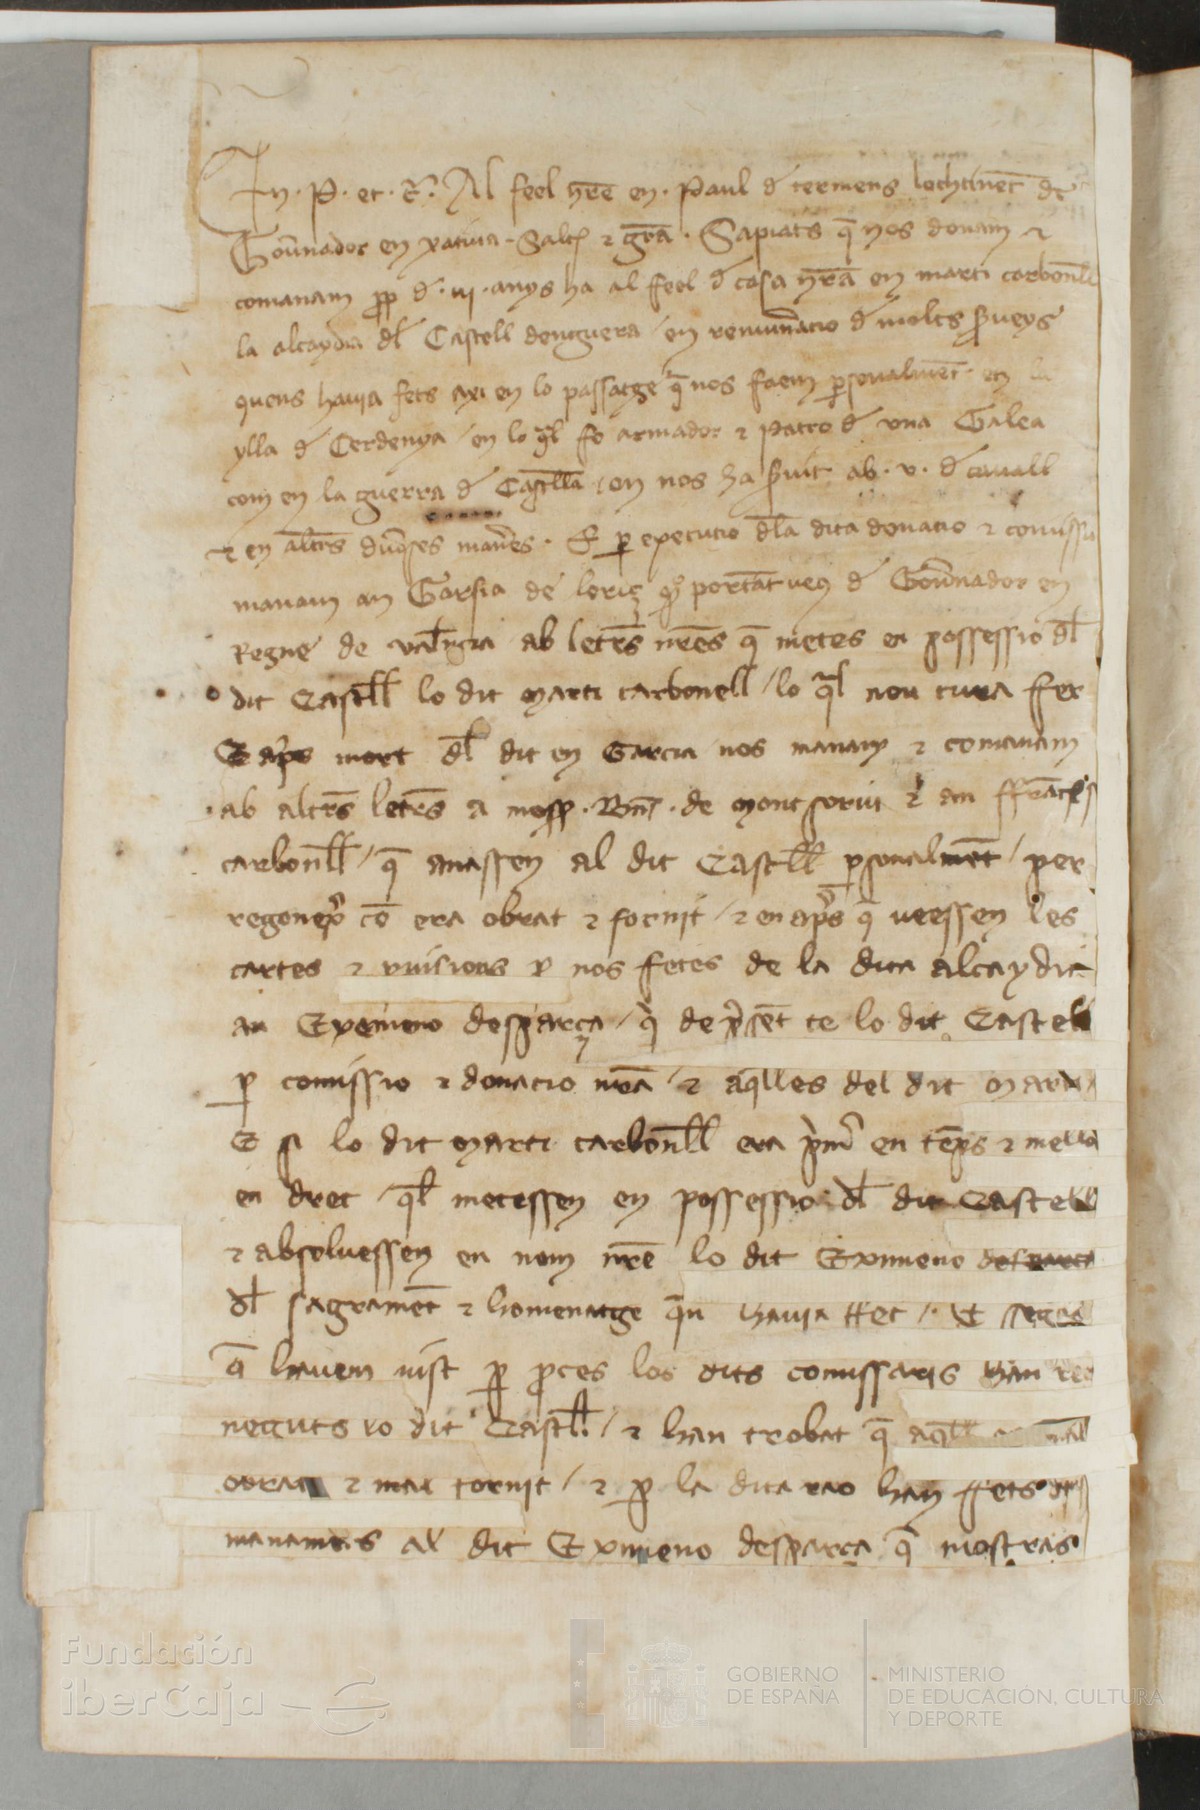 En . P . et . c̃ . Al feel nr̃e en . Paul d̃ termens lochtinẽt de
Gou̾nador en xatiua . Salt̃ ⁊ gr̃a . Sapiats q̃ nos donam ⁊
comanam pp̃ d̃ . iij . anys ha al feel d̃ casa nr̃a en marti carbonẽll
la alcaydia dl̃ Castell denguera / en remun̾acio d̃ molts s̃ueys
quens hauia fets axi en lo passatge q̃ nos faem p̱sonalmẽt . en la
ylla d̃ Cerdenya / en lo q̃l fo armador ⁊ patro d̃ una Galea
com en la guerra d̃ Castl̃la / on nos ha s̃uit ab . v . d̃ cauall
⁊ en alt̃rs diũses man̾es . E p̱ execucio dl̃a dita donacio ⁊ comissio
manam an Garsia de loriç q̃ portãtueus d̃ Gou̾nador en
Regne de val̃ncia ab letr̃s nr̃es q̃ metes en possessio dl̃
dit Castl̃l lo dit marti carbonell / lo q̃l nou cura ffer
E ap̃s mort dl̃ dit en Garcia nos manam ⁊ comanam
ab altr̃s letr̃s a moss̃ . Bñ . de montsoriu ⁊ an ffrãces
carbonl̃l / q̃ anassen al dit Castl̃l p̱sonalmẽt / per
regonex̃ cõ era obrat ⁊ fornit / ⁊ en ap̃s q̃ veessen les
cartes ⁊ p̱uisions p̱ nos fetes de la dita alcaydia
an Exemeno desparça / q̃ de p̃sẽt te lo dit Castell
p̱ comissio ⁊ donacio nr̃a / ⁊ aq̃lles del dit marti
E si lo dit marti carbonl̃l era p̃m̃ en tẽps ⁊ mellor
en dret / ql̃ metessen en possessio dl̃ dit Castell
⁊ absoluessen en nom nr̃e lo dit Exmeno desparça
dl̃ sagramẽt ⁊ homenatge q̃n hauia ffet / . E segons
q̃ hauem vist p̱ p̱ces los dits comissaris han rego
neguts lo dit Castl̃l / ⁊ han trobat q̃ aq̃ll mal
obrat ⁊ mal fornit / ⁊ p̱ la dita rao han ffets
manamẽts al dit Exmeno desparça q̃ mostras
Fundación
iberCaja
GOBIERNO
DE ESPAÑA
MINISTERIO
DE EDUCACIÓN, CULTURA
Y DEPORTE